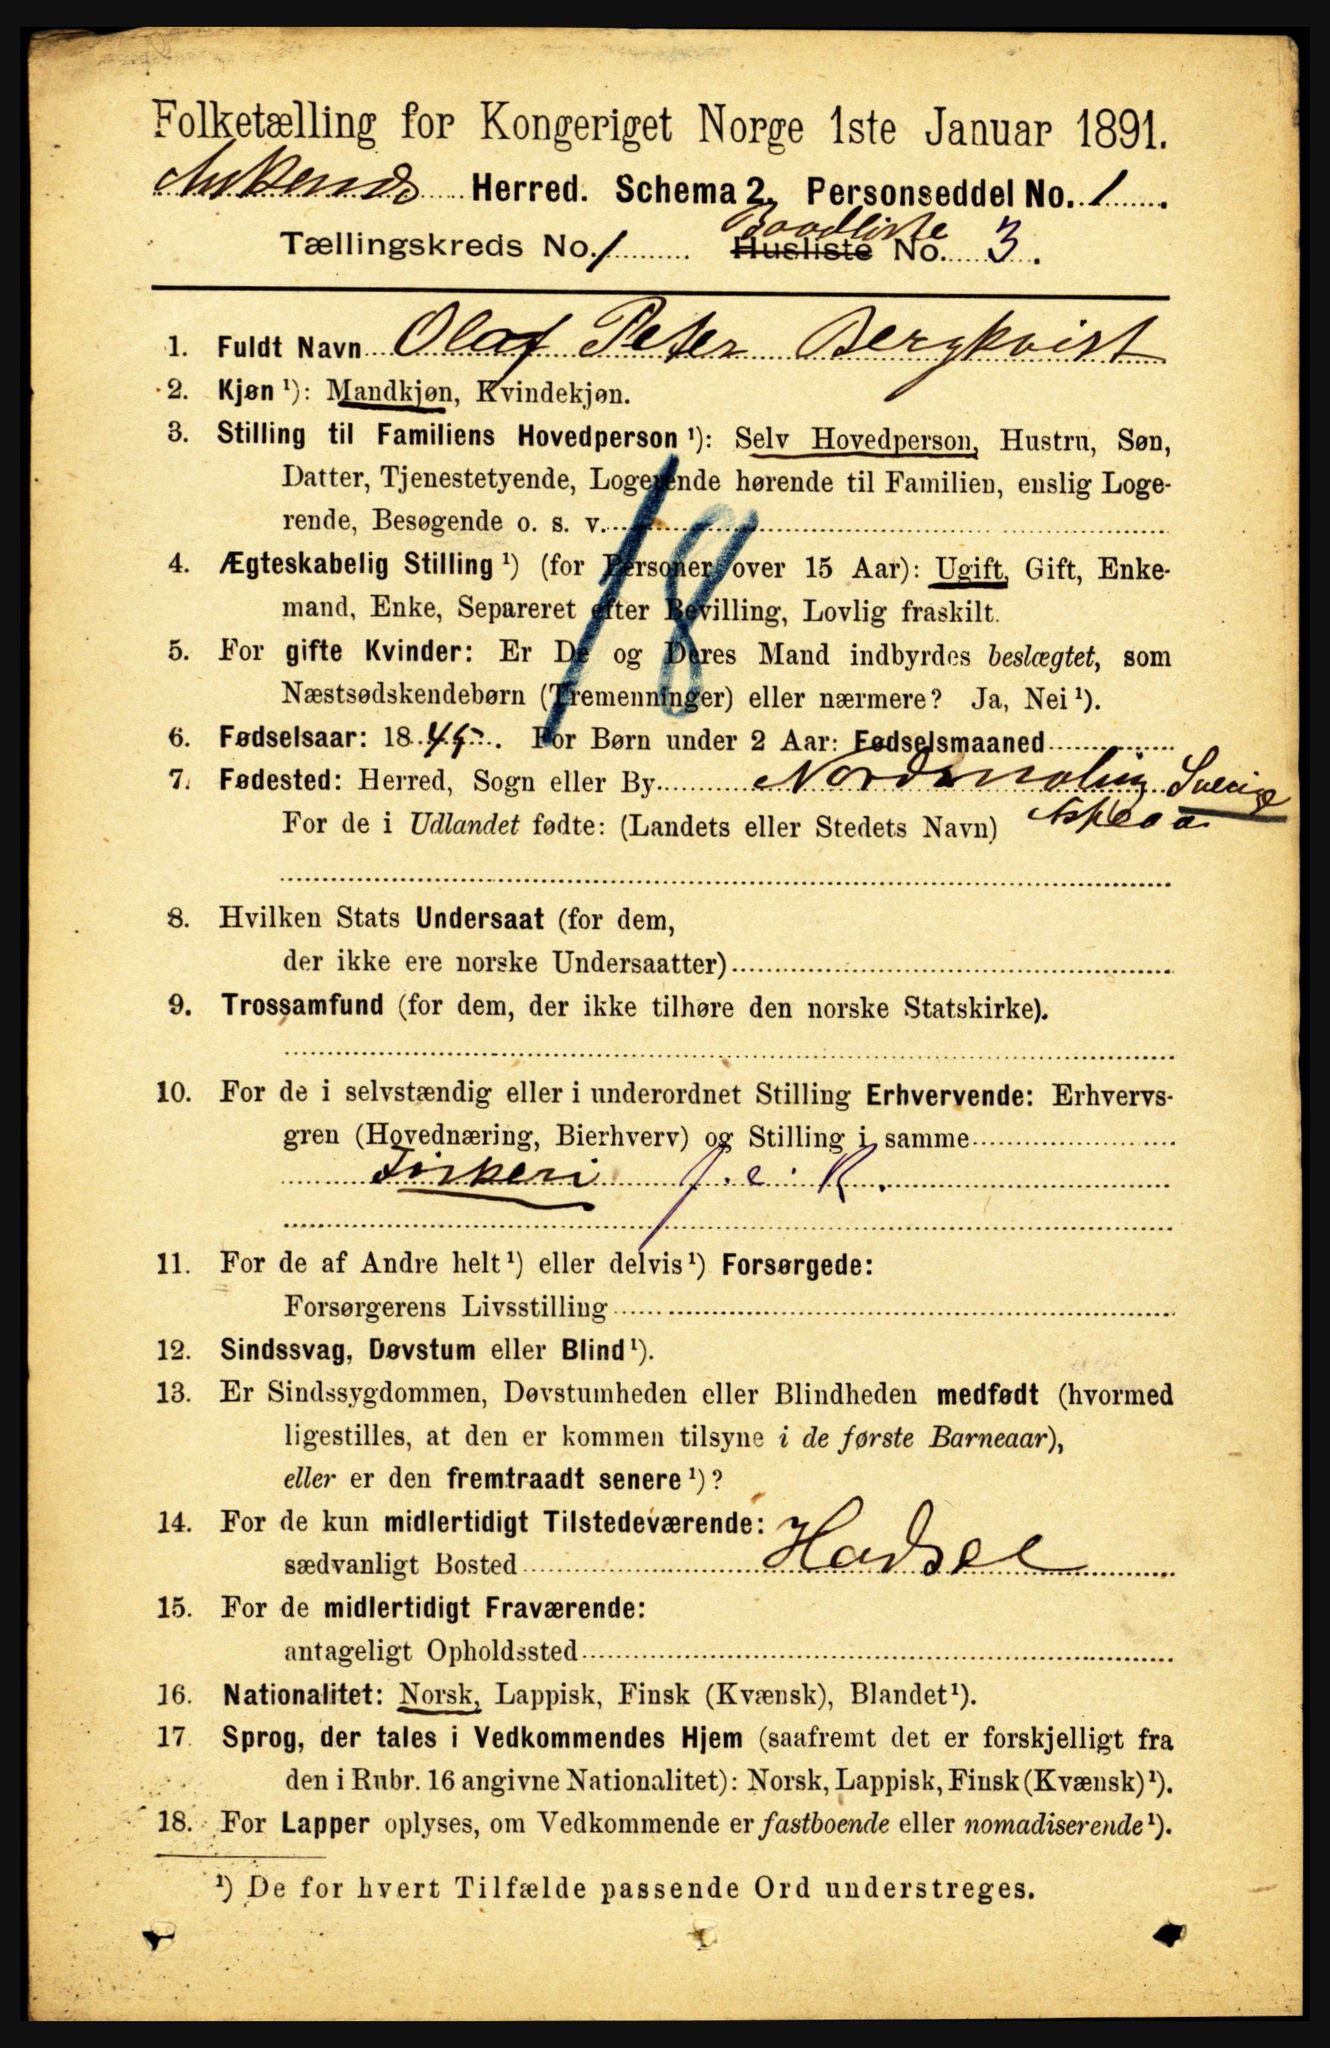 Folketælling for Kongeriget Norge 1ste Januar 1891.
Ankenes Herred. Schema 2. Personseddel No. 1.
Baadliste
Tællingskreds No. 1 Husliste No. 3.
1. Fuldt Navn Olaf Peter Bergkvist
2. Kjøn ¹): Mandkjøn, Kvindekjøn.
3. Stilling til Familiens Hovedperson ¹): Selv Hovedperson, Hustru, Søn,
Datter, Tjenestetyende, Logerende hørende til Familien, enslig Loge-
rende, Besøgende o. s. v.
18
4. Ægteskabelig Stilling ¹) (for Personer over 15 Aar): Ugift, Gift, Enke-
mand, Enke, Separeret efter Bevilling, Lovlig fraskilt.
5. For gifte Kvinder: Er De og Deres Mand indbyrdes beslægtet, som
Næstsødskendebørn (Tremenninger) eller nærmere? Ja, Nei ¹).
6. Fødselsaar: 1845. For Børn under 2 Aar: Fødselsmaaned
7. Fødested: Herred, Sogn eller By Nordmaling Sverige
For de i Udlandet fødte: (Landets eller Stedets Navn) Aspeaa
8. Hvilken Stats Undersaat (for dem,
der ikke ere norske Undersaatter)
9. Trossamfund (for dem, der ikke tilhøre den norske Statskirke).
10. For de i selvstændig eller i underordnet Stilling Erhvervende: Erhvervs-
gren (Hovednæring, Bierhverv) og Stilling i samme
Fiskeri f. e. R.
11. For de af Andre helt ¹) eller delvis ¹) Forsørgede:
Forsørgerens Livsstilling
12. Sindssvag, Døvstum eller Blind ¹).
13. Er Sindssygdommen, Døvstumheden eller Blindheden medfødt (hvormed
ligestilles, at den er kommen tilsyne i de første Barneaar),
eller er den fremtraadt senere ¹)?
14. For de kun midlertidigt Tilstedeværende:
sædvanligt Bosted Hadsel
15. For de midlertidigt Fraværende:
antageligt Opholdssted
16. Nationalitet: Norsk, Lappisk, Finsk (Kvænsk), Blandet ¹).
17. Sprog, der tales i Vedkommendes Hjem (saafremt det er forskjelligt fra
den i Rubr. 16 angivne Nationalitet): Norsk, Lappisk, Finsk (Kvænsk) ¹).
18. For Lapper oplyses, om Vedkommende er fastboende eller nomadiserende ¹).
¹) De for hvert Tilfælde passende Ord understreges.